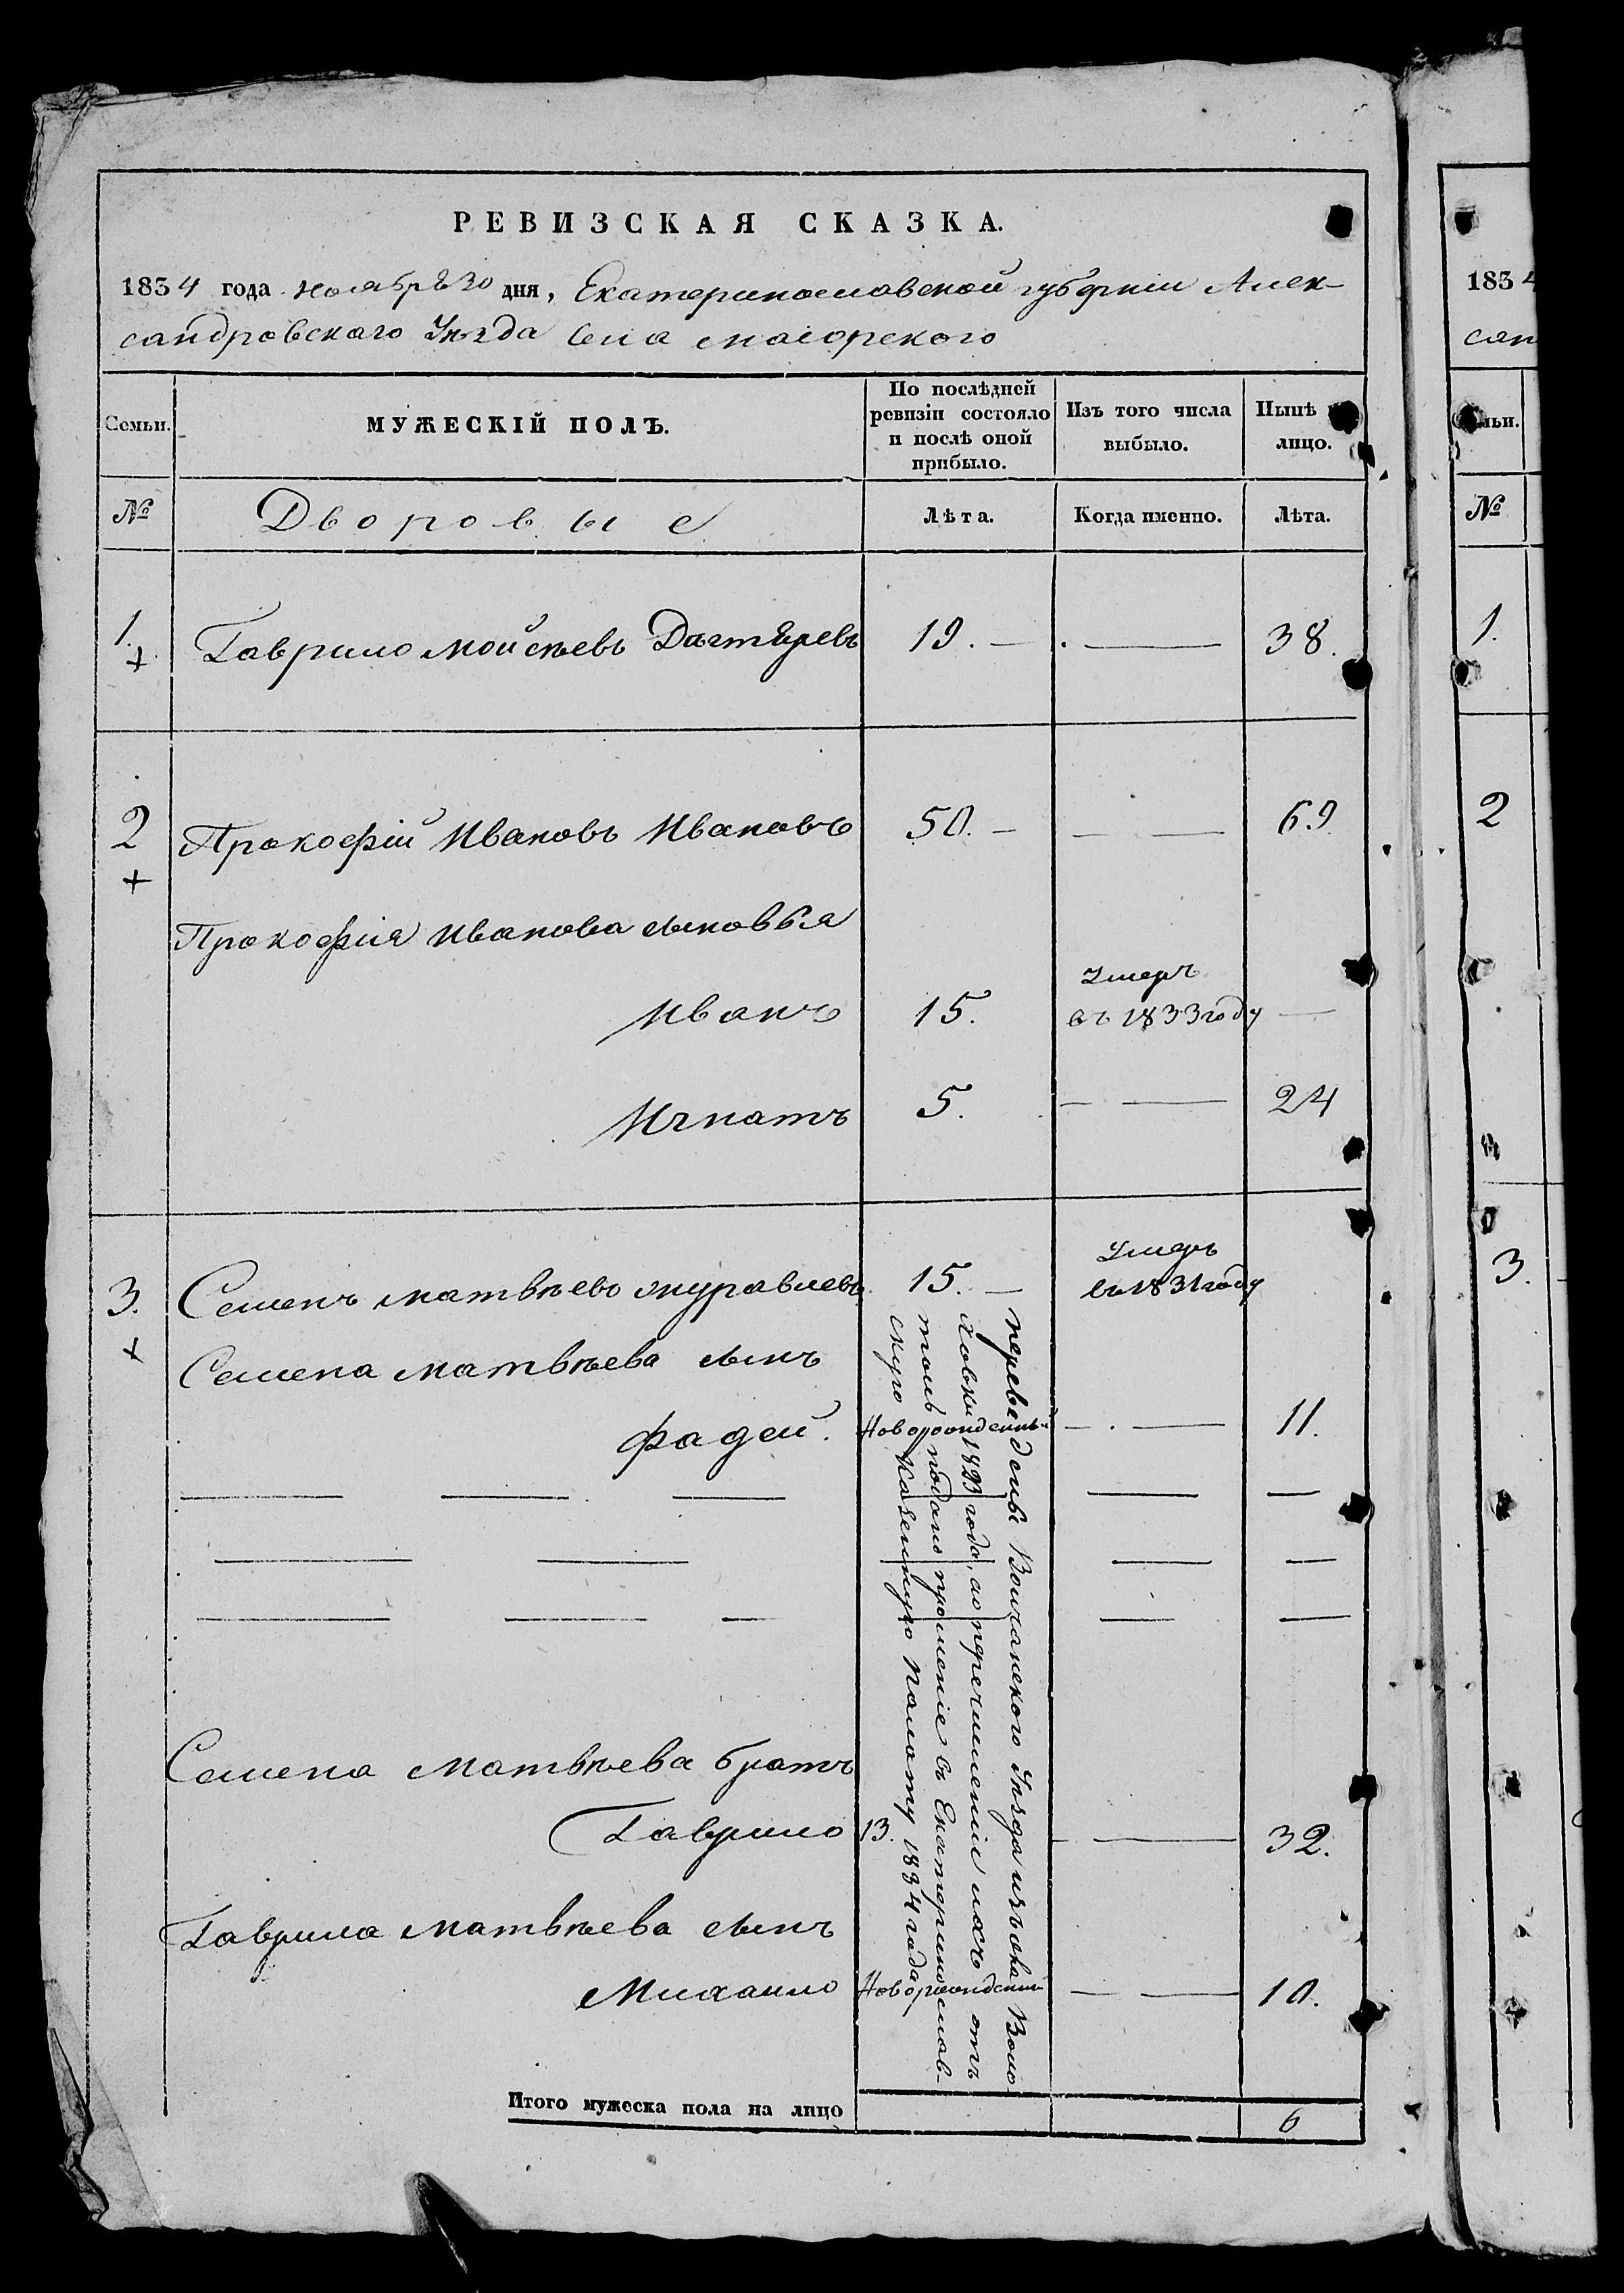 РЕВИЗСКАЯ СКАЗКА.
1834 года ноября 30 дня, Екатеринославской губерніи Алек-
сандровскаго Уѣзда села маіорского
Семьи.
МУЖЕСКІЙ ПОЛЪ.
По послѣдней ревизіи состояло и послѣ оной прибыло.
Изъ того числа выбыло.
Нынѣ
лицо.
№
Дворовые
Лѣта.
Когда именно.
Лѣта.
1. Гаврило Мойсѣевъ 19. — — 38.
+
2 Прокофій Ивановъ Ивановъ 50. — — 69
+
Прокофія Иванова сыновья
Иванъ 15. Умеръ въ 1833 году —
Игнатъ 5. — 24
3. Семенъ Матвѣевъ Журавлевъ 15. — Умеръ въ 1831 году
+
Семена Матвѣева сынъ
Фадей. Новорожденный — 11.
Семена Матвѣева братъ
Гаврило 13. — 32.
Гаврила Матвѣева сынъ
Михаило Новорожденный — 10.
переведены Волчанского Уѣзда изъ
ховки 1823 года, а о перечисленіи ихъ отъ
толь подано прошеніе въ Екатеринослав-
скую Казенную Палату 1834 года
Итого мужеска пола на лицо 6
1834
сан
№
1.
2
3.